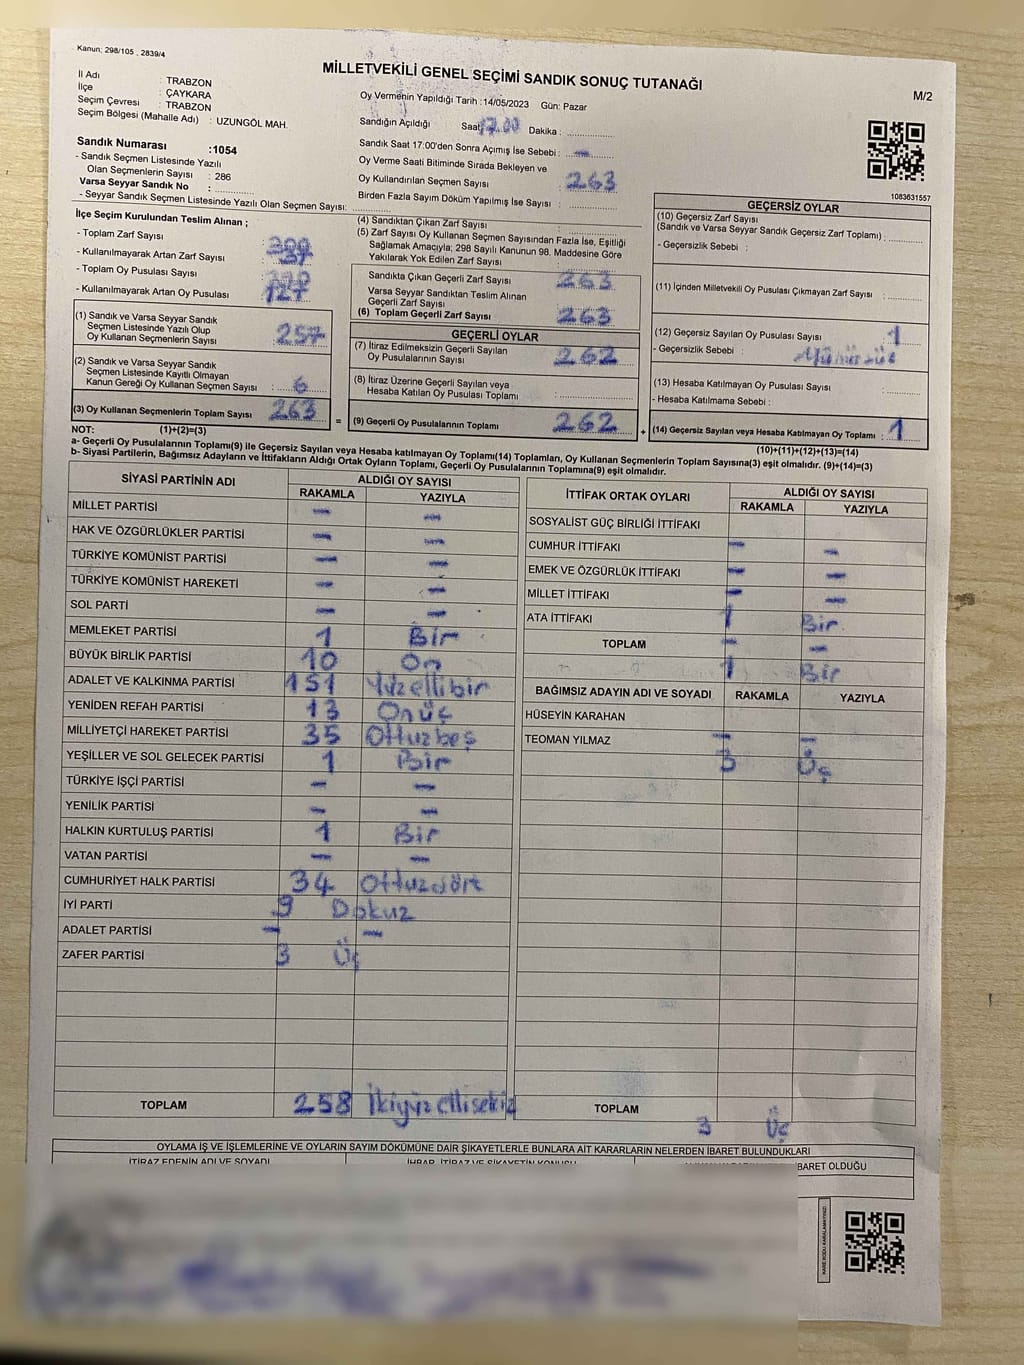 Kanun; 298/105 , 2839/4
MİLLETVEKİLİ GENEL SEÇİMİ SANDIK SONUÇ TUTANAĞI
M/2
İl Adı : TRABZON
İlçe : ÇAYKARA
Seçim Çevresi : TRABZON
Seçim Bölgesi (Mahalle Adı) : UZUNGÖL MAH.
Sandık Numarası :1054
- Sandık Seçmen Listesinde Yazılı
Olan Seçmenlerin Sayısı : 286
Varsa Seyyar Sandık No :
- Seyyar Sandık Seçmen Listesinde Yazılı Olan Seçmen Sayısı:
Oy Vermenin Yapıldığı Tarih :14/05/2023 Gün: Pazar
Sandığın Açıldığı Saat: 17.00 Dakika :
Sandık Saat 17:00'den Sonra Açımış İse Sebebi : -
Oy Verme Saati Bitiminde Sırada Bekleyen ve
Oy Kullandırılan Seçmen Sayısı : 263
Birden Fazla Sayım Döküm Yapılmış İse Sayısı :
1083631557
İlçe Seçim Kurulundan Teslim Alınan ;
- Toplam Zarf Sayısı : 300
- Kullanılmayarak Artan Zarf Sayısı : 37
- Toplam Oy Pusulası Sayısı :
- Kullanılmayarak Artan Oy Pusulası : 127
(1) Sandık ve Varsa Seyyar Sandık
Seçmen Listesinde Yazılı Olup
Oy Kullanan Seçmenlerin Sayısı : 257
(2) Sandık ve Varsa Seyyar Sandık
Seçmen Listesinde Kayıtlı Olmayan
Kanun Gereği Oy Kullanan Seçmen Sayısı : 6
(3) Oy Kullanan Seçmenlerin Toplam Sayısı : 263
(4) Sandıktan Çıkan Zarf Sayısı :
(5) Zarf Sayısı Oy Kullanan Seçmen Sayısından Fazla İse, Eşitliği
Sağlamak Amacıyla; 298 Sayılı Kanunun 98. Maddesine Göre
Yakılarak Yok Edilen Zarf Sayısı :
Sandıkta Çıkan Geçerli Zarf Sayısı : 263
Varsa Seyyar Sandıktan Teslim Alınan
Geçerli Zarf Sayısı :
(6) Toplam Geçerli Zarf Sayısı : 263
GEÇERLİ OYLAR
(7) İtiraz Edilmeksizin Geçerli Sayılan
Oy Pusulalarının Sayısı : 262
(8) İtiraz Üzerine Geçerli Sayılan veya
Hesaba Katılan Oy Pusulası Toplamı :
= (9) Geçerli Oy Pusulalarının Toplamı : 262
GEÇERSİZ OYLAR
(10) Geçersiz Zarf Sayısı
(Sandık ve Varsa Seyyar Sandık Geçersiz Zarf Toplamı) :
- Geçersizlik Sebebi :
(11) İçinden Milletvekili Oy Pusulası Çıkmayan Zarf Sayısı :
(12) Geçersiz Sayılan Oy Pusulası Sayısı : 1
- Geçersizlik Sebebi : Mühürsüz
(13) Hesaba Katılmayan Oy Pusulası Sayısı :
- Hesaba Katılmama Sebebi :
+ (14) Geçersiz Sayılan veya Hesaba Katılmayan Oy Toplamı : 1
NOT: (1)+(2)=(3)
(10)+(11)+(12)+(13)=(14)
a- Geçerli Oy Pusulalarının Toplamı(9) ile Geçersiz Sayılan veya Hesaba katılmayan Oy Toplamı(14) Toplamları, Oy Kullanan Seçmenlerin Toplam Sayısına(3) eşit olmalıdır. (9)+(14)=(3)
b- Siyasi Partilerin, Bağımsız Adayların ve İttifakların Aldığı Ortak Oyların Toplamı, Geçerli Oy Pusulalarının Toplamına(9) eşit olmalıdır.
SİYASİ PARTİNİN ADI ALDIĞI OY SAYISI
RAKAMLA YAZIYLA
MİLLET PARTİSİ - -
HAK VE ÖZGÜRLÜKLER PARTİSİ - -
TÜRKİYE KOMÜNİST PARTİSİ - -
TÜRKİYE KOMÜNİST HAREKETİ - -
SOL PARTİ - -
MEMLEKET PARTİSİ 1 Bir
BÜYÜK BİRLİK PARTİSİ 10 On
ADALET VE KALKINMA PARTİSİ 151 Yüzellibir
YENİDEN REFAH PARTİSİ 13 Onüç
MİLLİYETÇİ HAREKET PARTİSİ 35 Ottuzbeş
YEŞİLLER VE SOL GELECEK PARTİSİ 1 Bir
TÜRKİYE İŞÇİ PARTİSİ - -
YENİLİK PARTİSİ - -
HALKIN KURTULUŞ PARTİSİ 1 Bir
VATAN PARTİSİ - -
CUMHURİYET HALK PARTİSİ 34 Ottuzdört
İYİ PARTİ 9 Dokuz
ADALET PARTİSİ - -
ZAFER PARTİSİ 3 Üç
TOPLAM 258 İkiyüzellisekiz
İTTİFAK ORTAK OYLARI ALDIĞI OY SAYISI
RAKAMLA YAZIYLA
SOSYALİST GÜÇ BİRLİĞİ İTTİFAKI
CUMHUR İTTİFAKI - -
EMEK VE ÖZGÜRLÜK İTTİFAKI - -
MİLLET İTTİFAKI - -
ATA İTTİFAKI 1 Bir
TOPLAM - -
1 Bir
BAĞIMSIZ ADAYIN ADI VE SOYADI RAKAMLA YAZIYLA
HÜSEYİN KARAHAN
TEOMAN YILMAZ - -
3 Üç
TOPLAM 3 Üç
OYLAMA İŞ VE İŞLEMLERİNE VE OYLARIN SAYIM DÖKÜMÜNE DAİR ŞİKAYETLERLE BUNLARA AİT KARARLARIN NELERDEN İBARET BULUNDUKLARI
İTİRAZ EDENİN ADI VE SOYADI İHBAR, İTİRAZ VE ŞİKAYETİN KONUSU BARET OLDUĞU